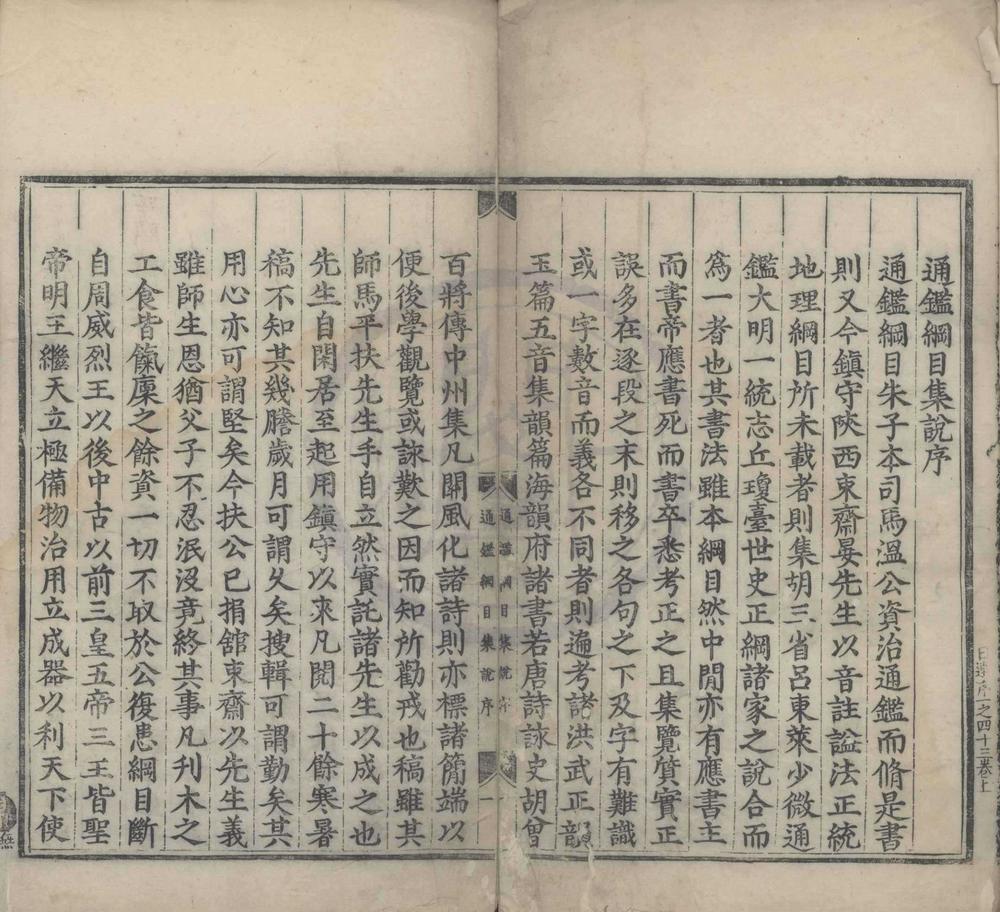 通鑑綱目集說序
通鑑綱目朱子本司馬溫公資治通鑑而脩是書
則又今鎮守陝西東齋晏先生以音註謚法正統
地理綱目所未載者則集胡三省呂東萊少微通
鑑大明一統志丘瓊臺世史正綱諸家之說合而
爲一者也其書法雖本綱目然中間亦有應書主
而書帝應書死而書卒悉考正之且集覽質實正
誤多在逐段之末則移之各句之下及字有難識
或一字數音而義各不同者則遍考諸洪武正韻
玉篇五音集韻篇海韻府諸書若唐詩詠史胡曾
通鑑綱目集說序
一
百將傳中州集凡關風化諸詩則亦標諸簡端以
便後學觀覽或詠歎之因而知所勸戒也稿雖其
師馬平扶先生手自立然實託諸先生以成之也
先生自閑居至起用鎮守以來凡閱二十餘寒暑
稿不知其幾謄歲月可謂久矣搜輯可謂勤矣其
用心亦可謂堅矣今扶公已捐舘東齋以先生義
雖師生恩猶父子不忍泯沒竟終其事凡刋木之
工食皆餼廩之餘資一切不取於公復患綱目斷
自周威烈王以後中古以前三皇五帝三王皆聖
帝明王繼天立極備物治用立成器以利天下使